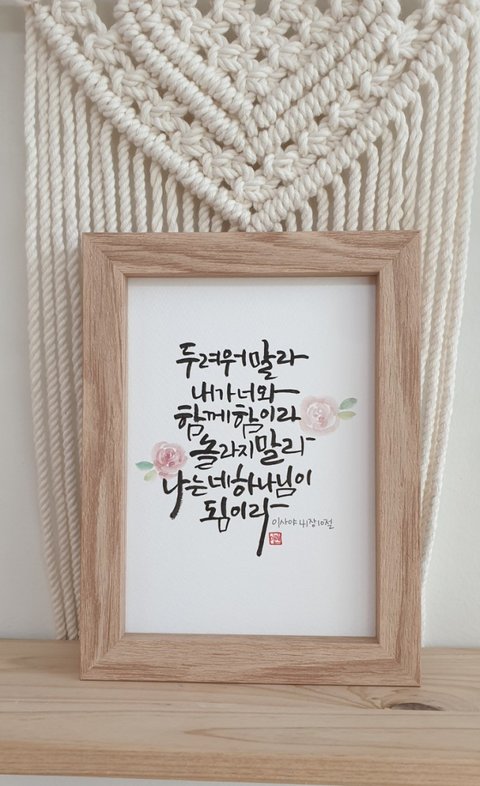 두려워말라
내가너와
함께함이라
놀라지말라
나는네하나님이
됨이라
이사야41장10절